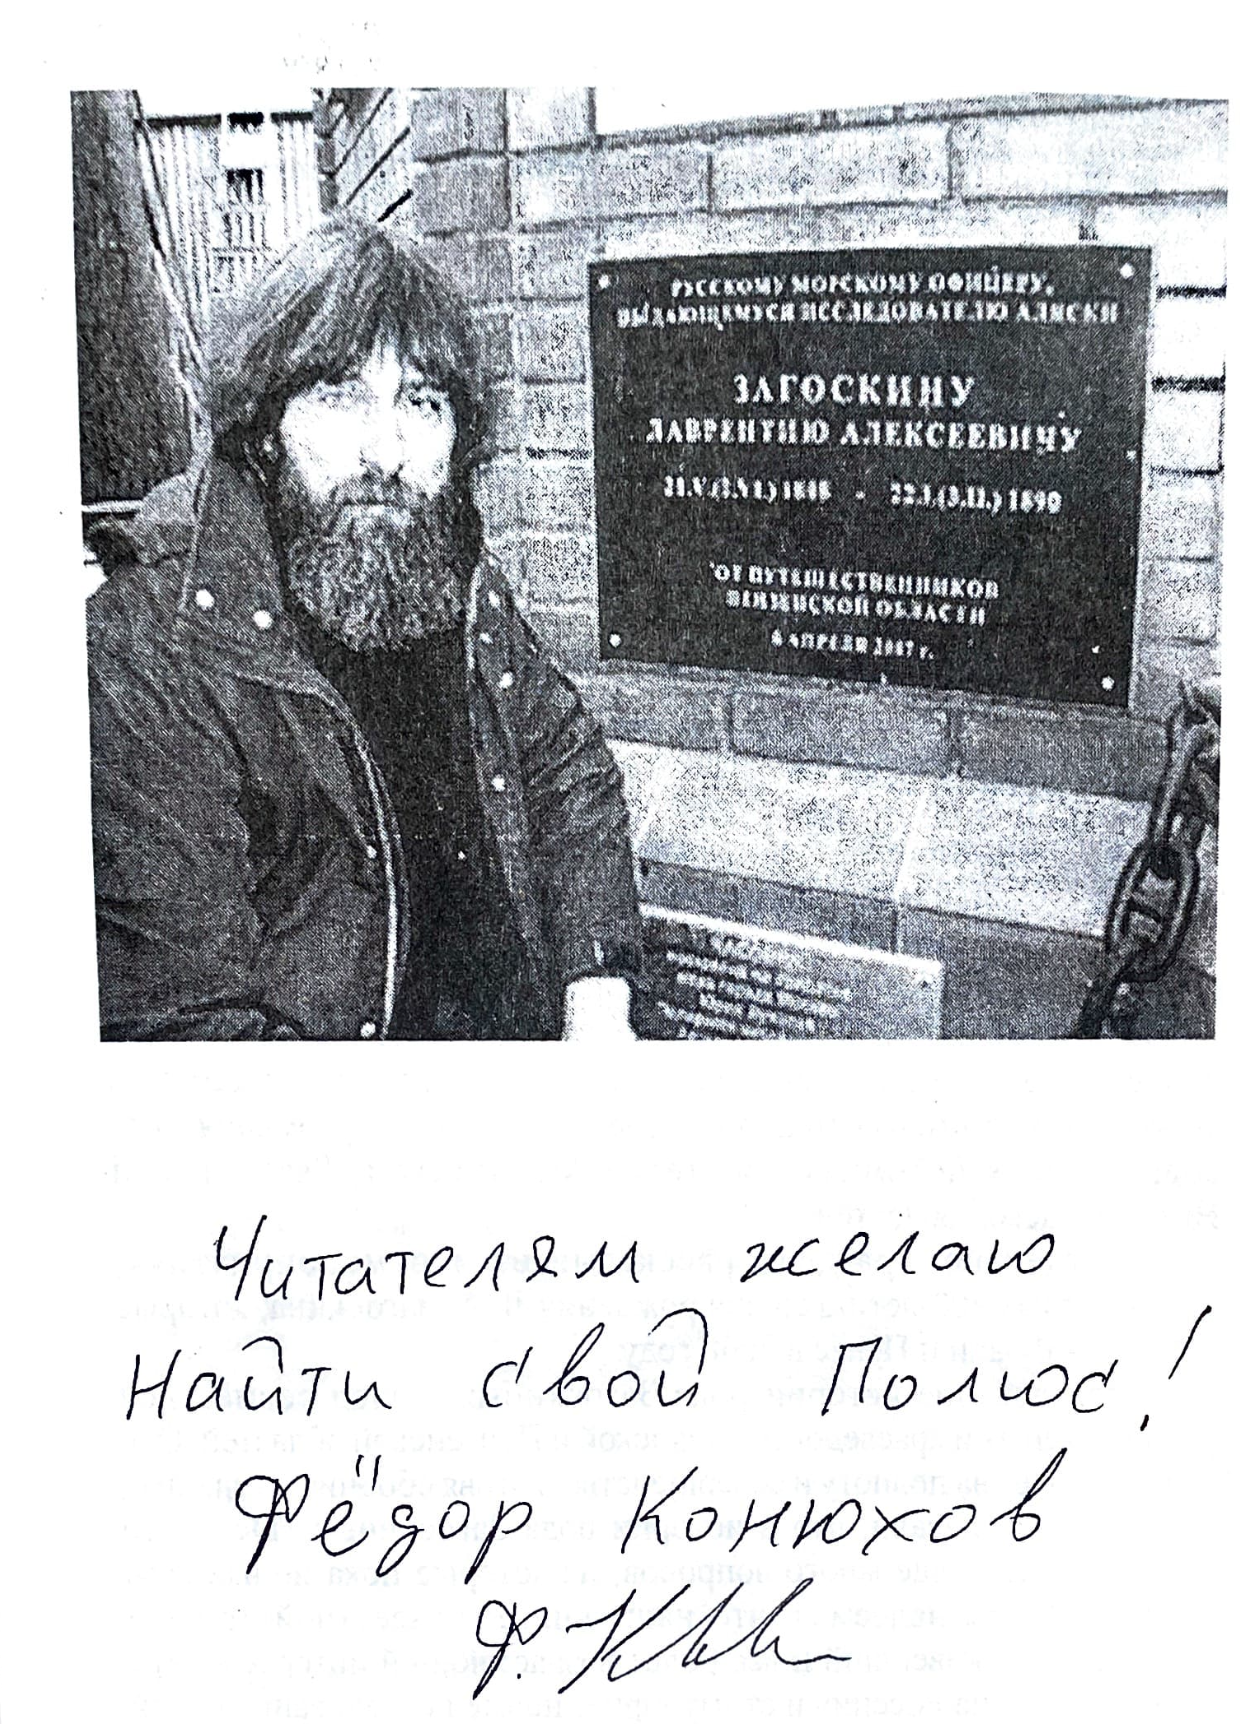 РУССКОМУ МОРСКОМУ ОФИЦЕРУ,
ВЫДАЮЩЕМУСЯ ИССЛЕДОВАТЕЛЮ АЛЯСКИ
ЗАГОСКИНУ
ЛАВРЕНТИЮ АЛЕКСЕЕВИЧУ
- 22.I.(3.II.) 1890
ОТ ПУТЕШЕСТВЕННИКОВ
ПЕНЗЕНСКОЙ ОБЛАСТИ
АПРЕЛЯ 2007 г.
Читателям желаю
Найти свой Полюс!
Фёдор Конюхов